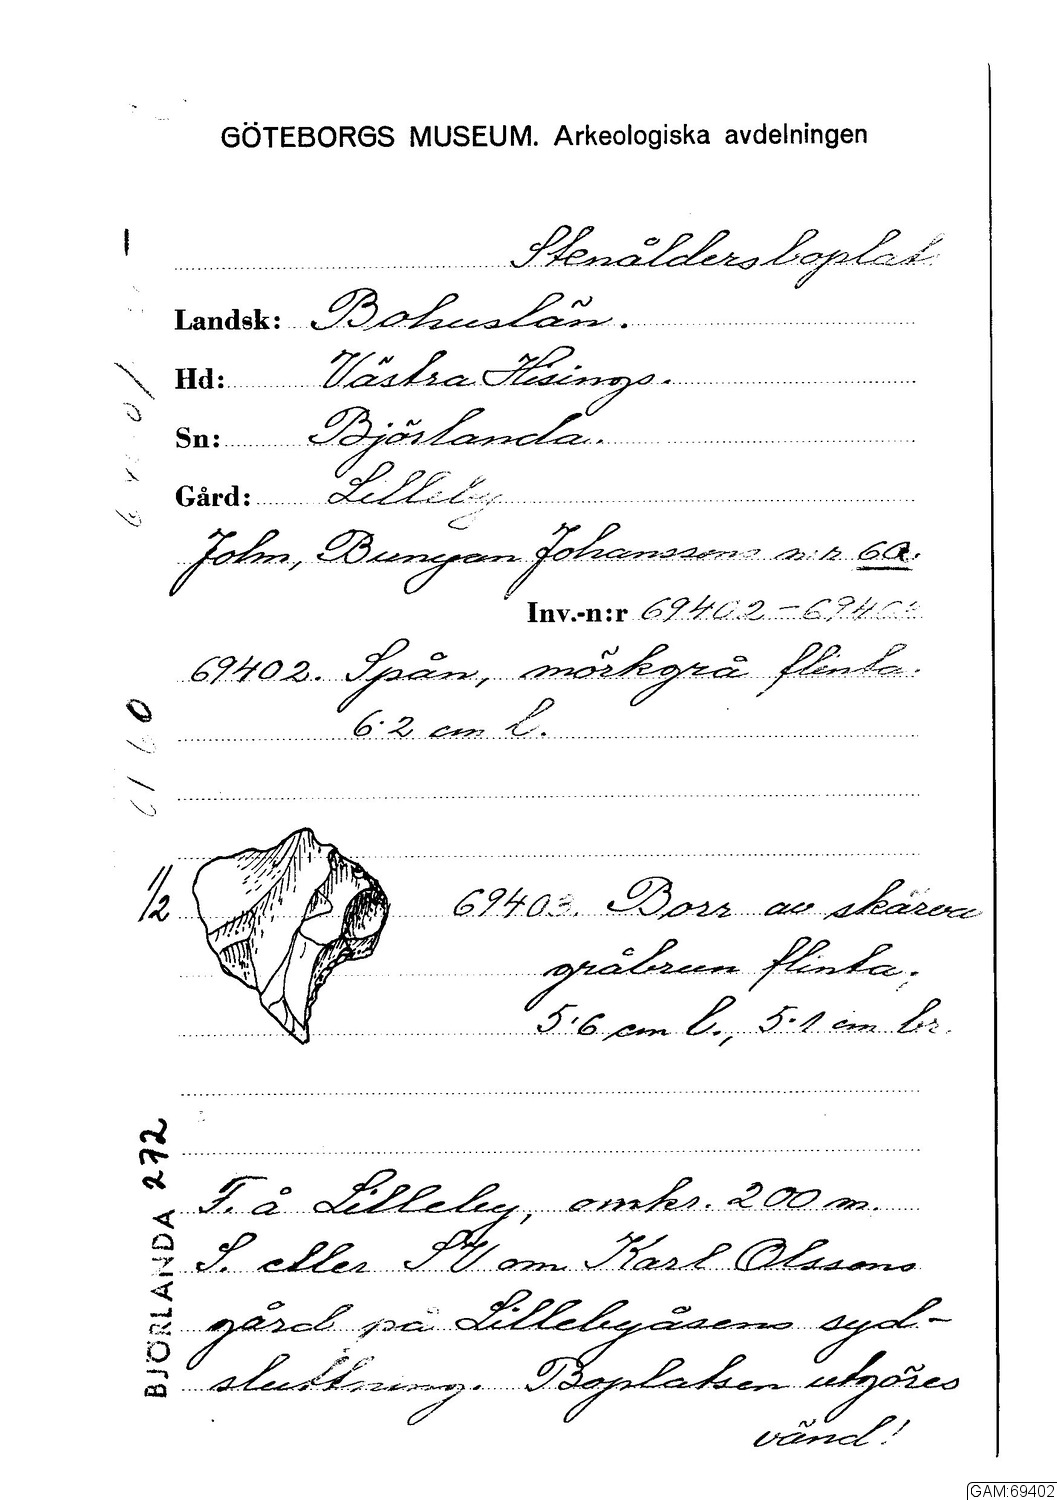 GÖTEBORGS MUSEUM. Arkeologiska avdelningen
Stenåldersboplat
Landsk: Bohuslän.
Hd: Västra Hisings.
Sn: Björlanda.
Gård: Lilleby
John, Bunyan Johanssons n:r 6a.
Inv.-n:r 69402-6940
69402. Spån, mörkgrå flinta.
6.2 cm l.
1/2
69403. Borr av skärva
gråbrun flinta;
5.6 cm l., 5.1 cm br.
F. å Lilleby, omkr. 200 m.
S. eller SV om Karl Olssons
gård på Lillebyåsens syd-
sluttning. Boplatsen utgöres
vänd!
BJÖRLANDA 272
GAM:69402